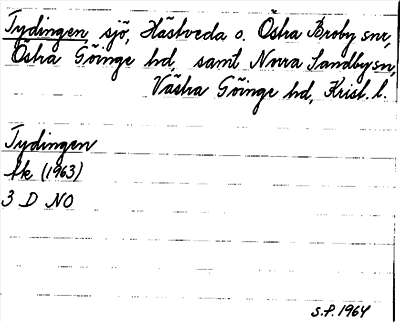 Tydingen sjö, Hästveda o. Östra Broby snr,
Östra Göinge hd, samt Norra Sandby sn,
Västra Göinge hd, Krist. l.
Tydingen
tk (1963)
3 D NO
S.P. 1964